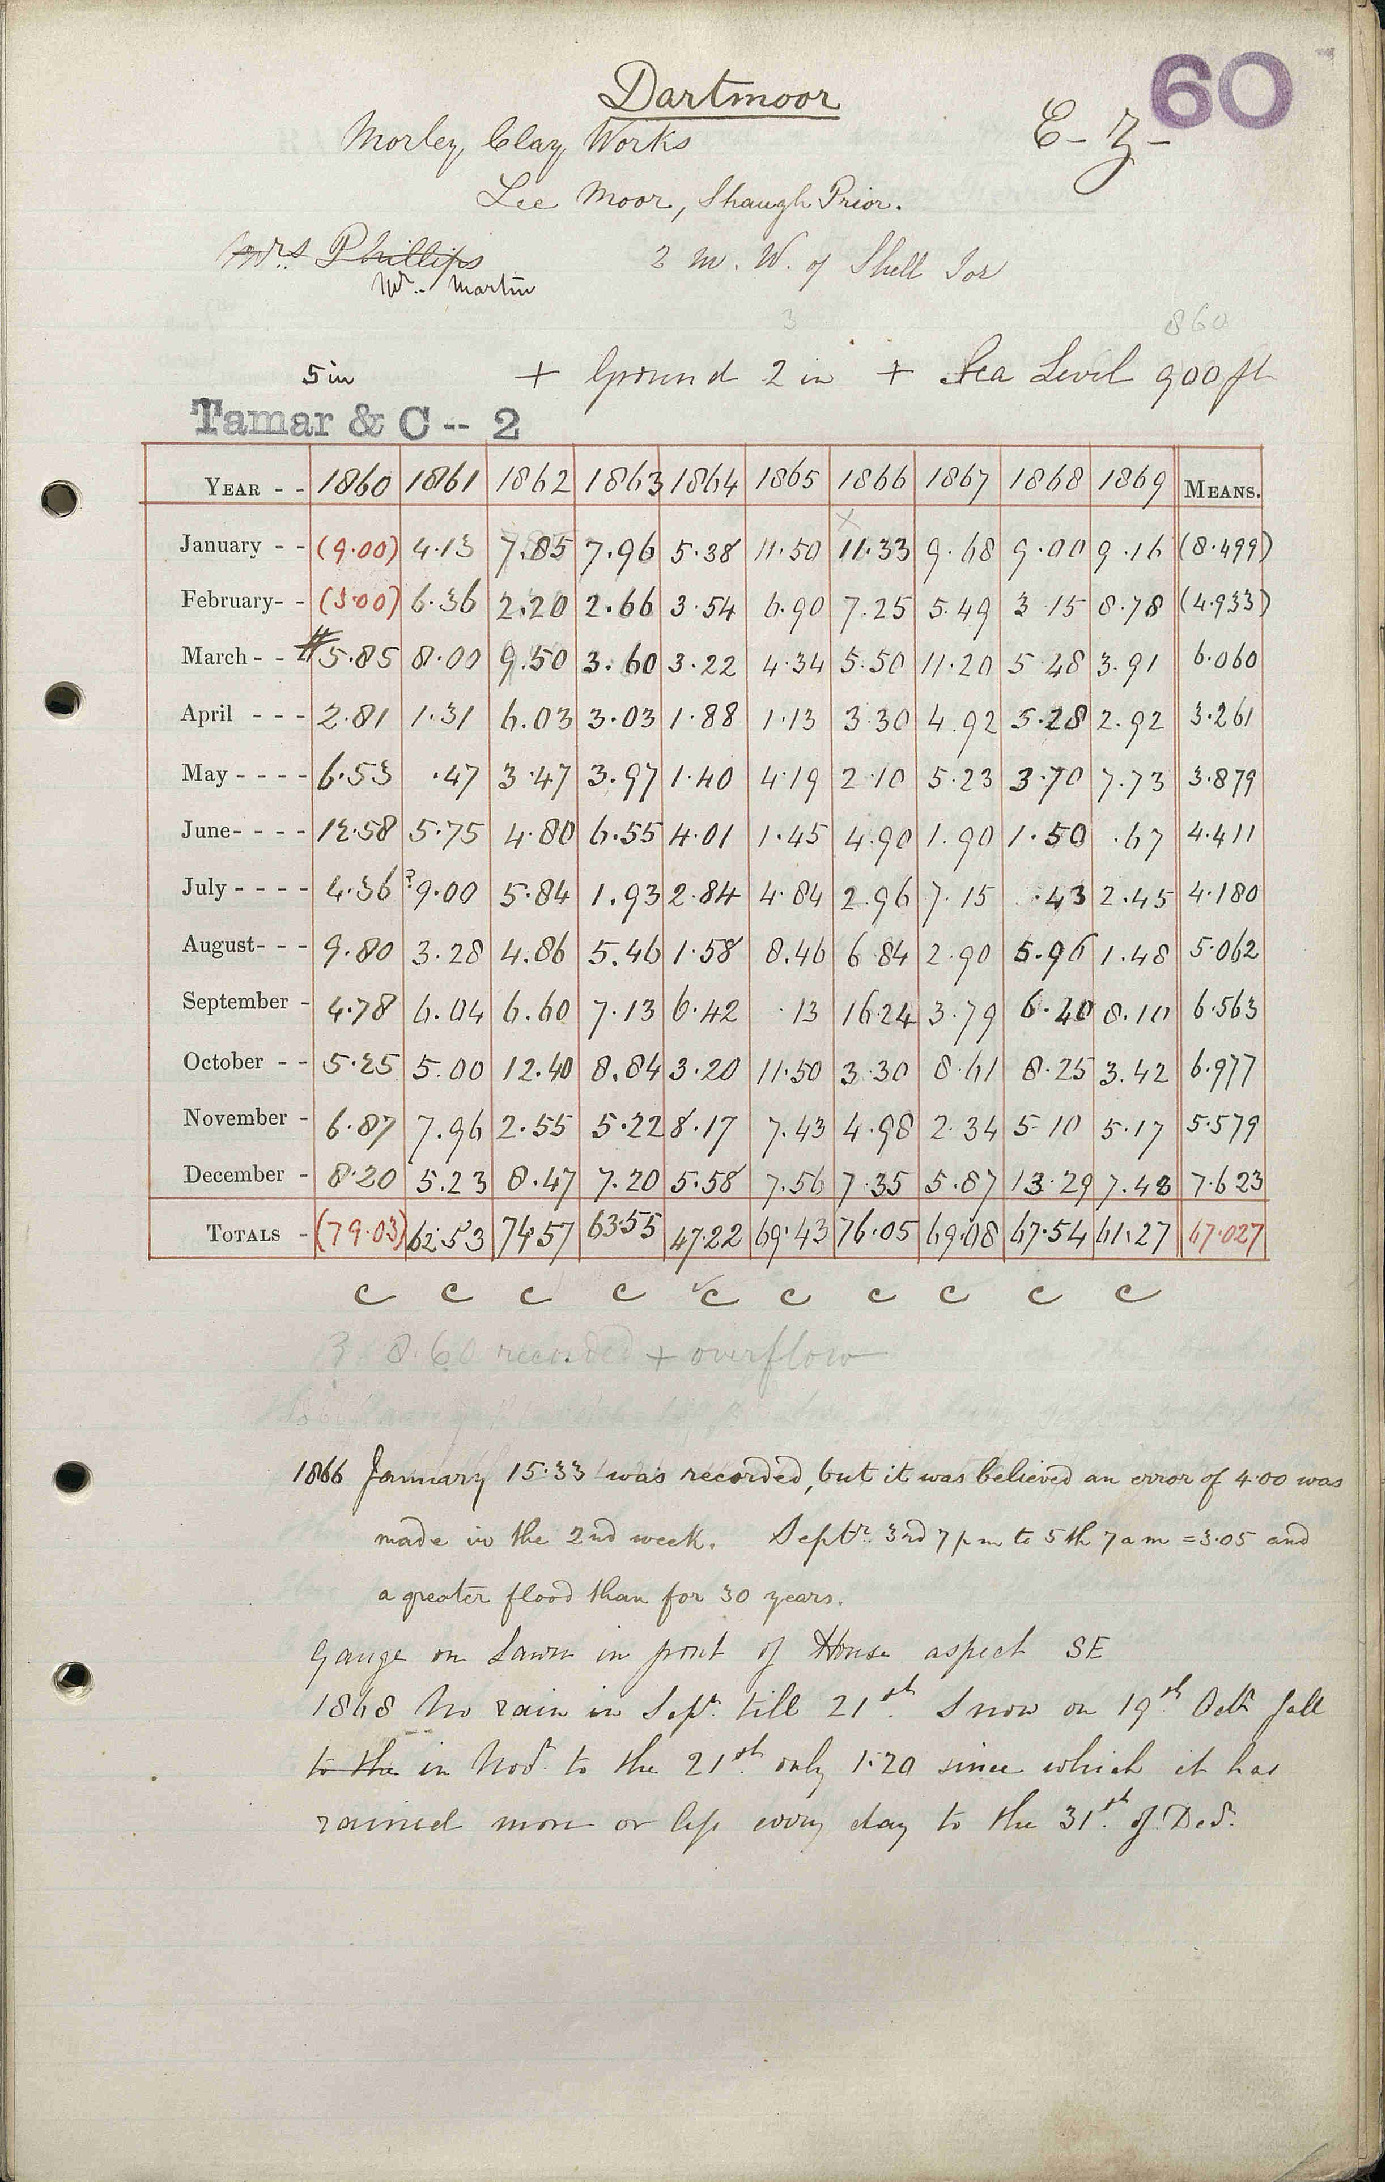 60
Dartmoor
Morley Clay Works
E - Z -
Lee Moor, Shaugh Prior.
Mrs Phillips
2 m. W. of Shell Tor
Mr. Martin
3
860
5 in + Ground 2 in + Sea Level 900 ft
Tamar & C -- 2
YEAR - - 1860 1861 1862 1863 1864 1865 1866 1867 1868 1869 MEANS.
x
January - - (9.00) 4.13 7.85 7.96 5.38 11.50 11.33 9.68 9.00 9.16 (8.499)
February- - (3.00) 6.36 2.20 2.66 3.54 6.90 7.25 5.49 3.15 8.78 (4.933)
March - - 5.85 8.00 9.50 3.60 3.22 4.34 5.50 11.20 5.48 3.91 6.060
April - - - 2.81 1.31 6.03 3.03 1.88 1.13 3.30 4.92 5.28 2.92 3.261
May - - - - 6.53 .47 3.47 3.97 1.40 4.19 2.10 5.23 3.70 7.73 3.879
June- - - - 12.58 5.75 4.80 6.55 4.01 1.45 4.90 1.90 1.50 .67 4.411
July - - - - 4.36 ?9.00 5.84 1.93 2.84 4.84 2.96 7.15 .43 2.45 4.180
August- - - 9.80 3.28 4.86 5.46 1.58 8.46 6.84 2.90 5.96 1.48 5.062
September - 4.78 6.04 6.60 7.13 6.42 .13 16.24 3.79 6.40 8.10 6.563
October - - 5.25 5.00 12.40 8.84 3.20 11.50 3.30 8.61 8.25 3.42 6.977
November - 6.87 7.96 2.55 5.22 8.17 7.43 4.98 2.34 5.10 5.17 5.579
December - 8.20 5.23 8.47 7.20 5.58 7.56 7.35 5.87 13.29 7.48 7.623
TOTALS - (79.03) 62.53 74.57 63.55 47.22 69.43 76.05 69.08 67.54 61.27 67.027
c c c c c c c c c c
8.60 recorded + overflow
1866 January 15.33 was recorded, but it was believed an error of 4.00 was
made in the 2nd week. Septr. 3rd 7 pm to 5th 7 am = 3.05 and
a greater flood than for 30 years.
Gauge on Lawn in front of House aspect SE
1868 No rain in Sepr. till 21st. Snow on 19th Octr fall
to the in Novr. to the 21st. only 1.20 since which it has
rained more or less every day to the 31st. of Decr.